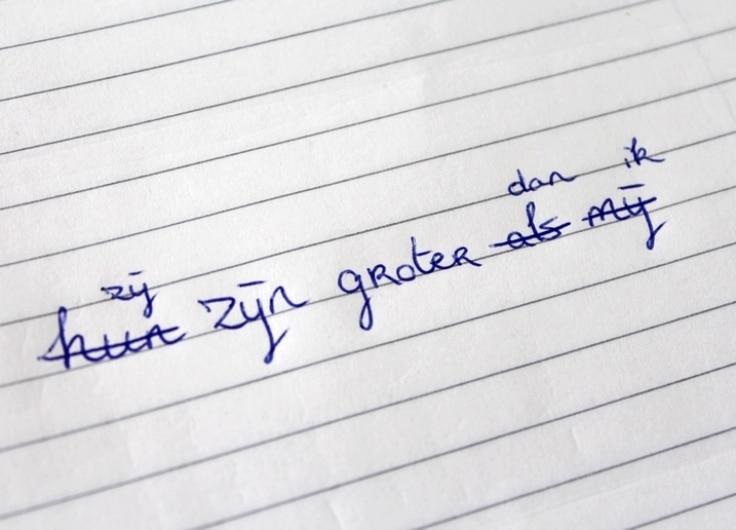 dan ik
zij
hun zijn groter als mij